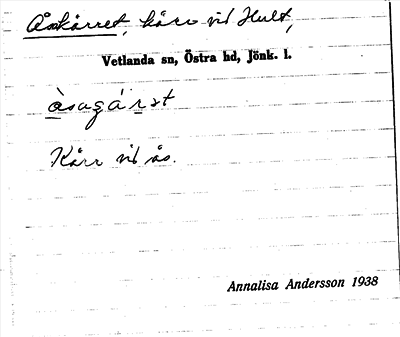 Åskärret, kärr vid Hult,
Vetlanda sn, Östra hd, Jönk. l.
àsagárst
Kärr vid ås.
Annalisa Andersson 1938